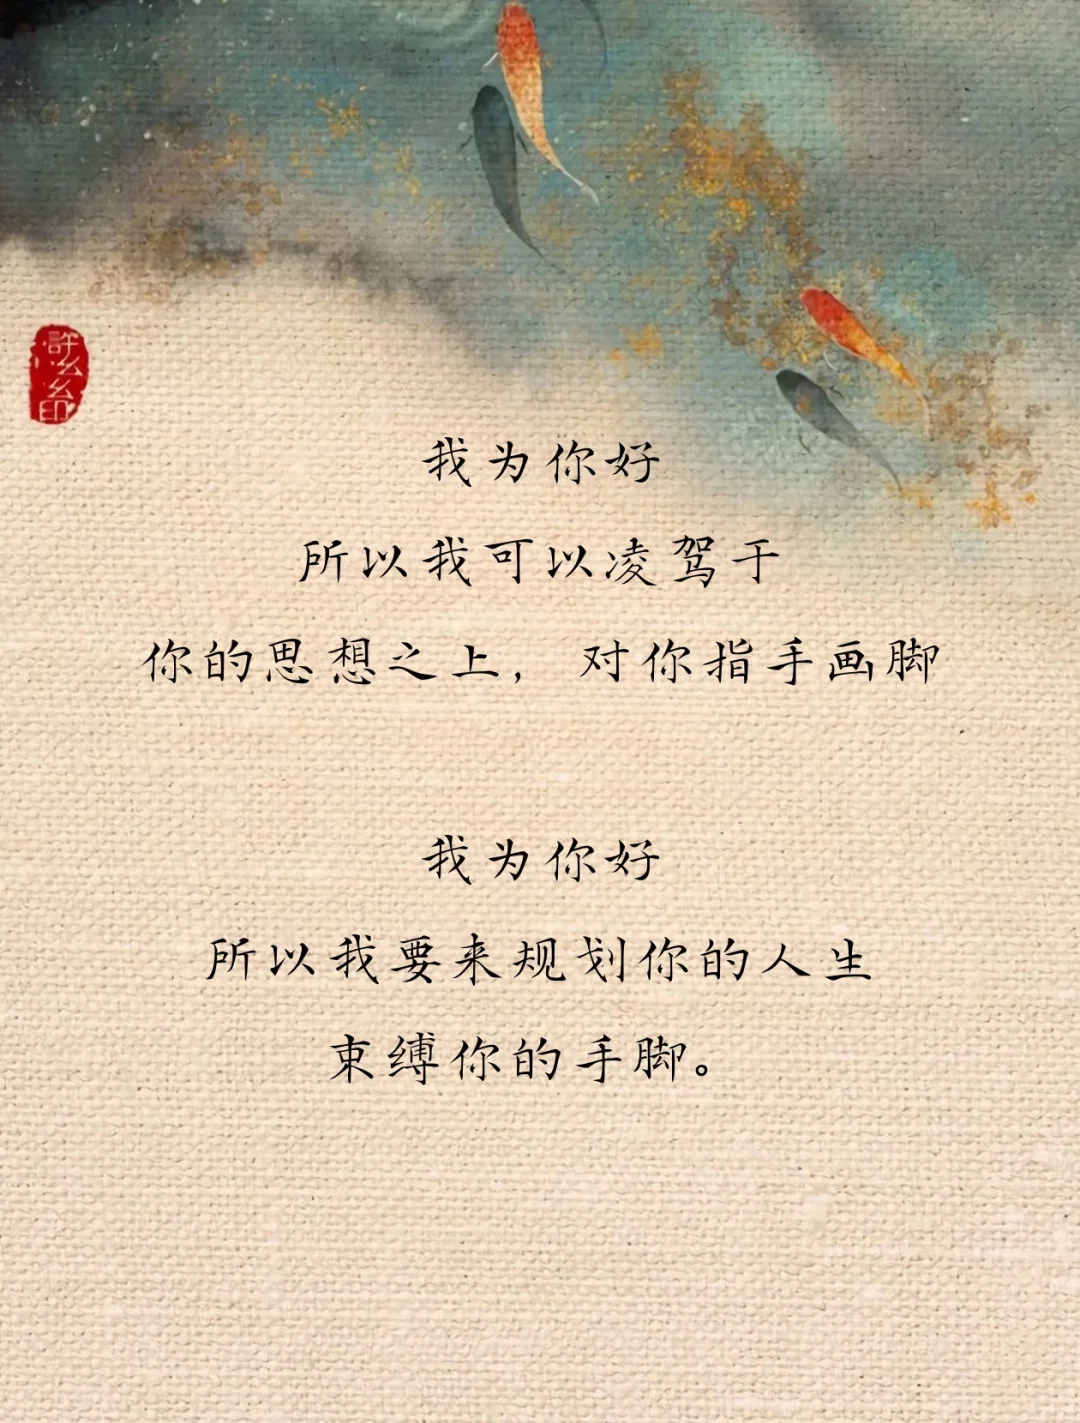 我为你好
所以我可以凌驾于
你的思想之上，对你指手画脚
我为你好
所以我要来规划你的人生
束缚你的手脚。